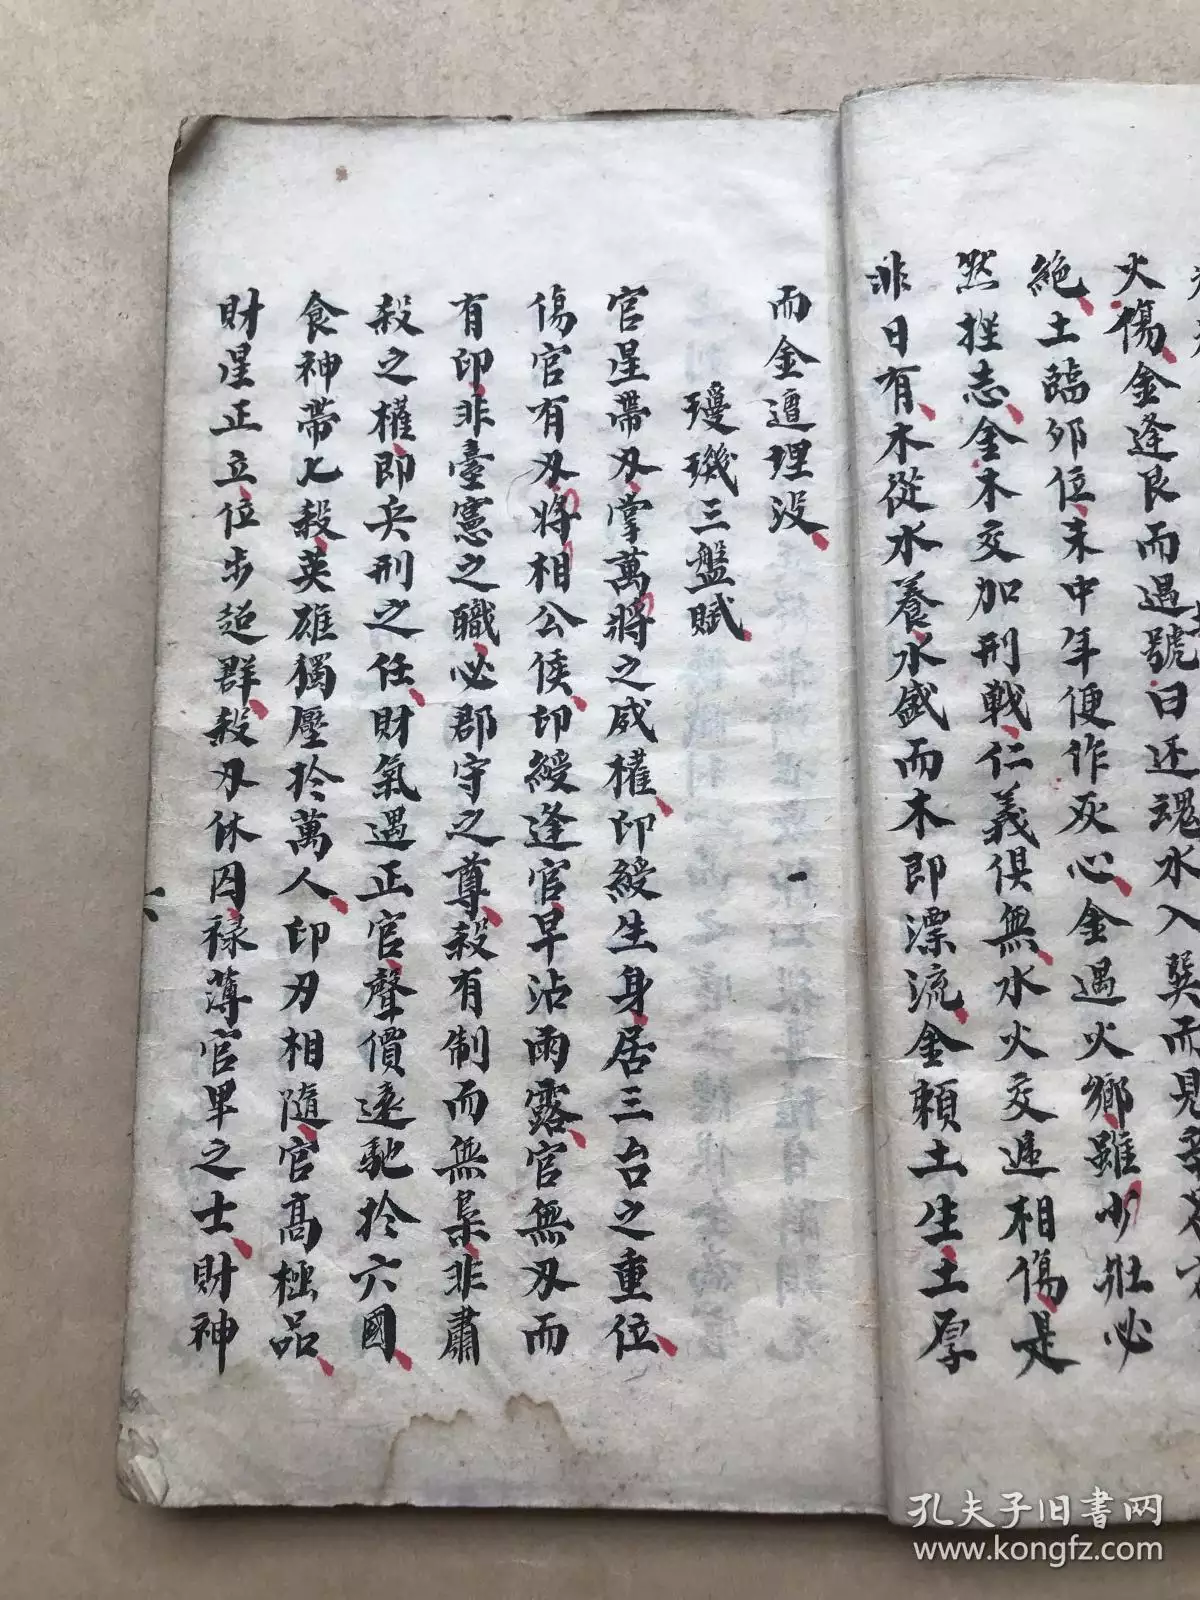 火傷、金逢艮而遇號曰还魂水入巽而見
絕、土臨卯位、未中年便作灰心、金遇火鄉、雖少壯必
然挫志、金木交加刑戰、仁義俱無、水火交遞相傷、是
非日有、木從水養、水盛而木即漂流、金賴土生、土厚
而金遭理没、
璇璣三盤賦、
官星帶刃、掌萬將之威權、印綬生身、居三台之重位、
傷官有刃、將相公侯、印綬逢官、早沾雨露、官無刃而
有印、非臺憲之職、必郡守之尊、殺有制而無梟、非肅
殺之權、即兵刑之任、財氣遇正官、聲價遠馳於六國、
食神帶七殺、英雄獨壓於萬人、印刃相隨、官高極品、
財星正立、位步超群、殺刃休囚、禄薄官卑之士、財神
孔夫子旧书网
www.kongfz.com